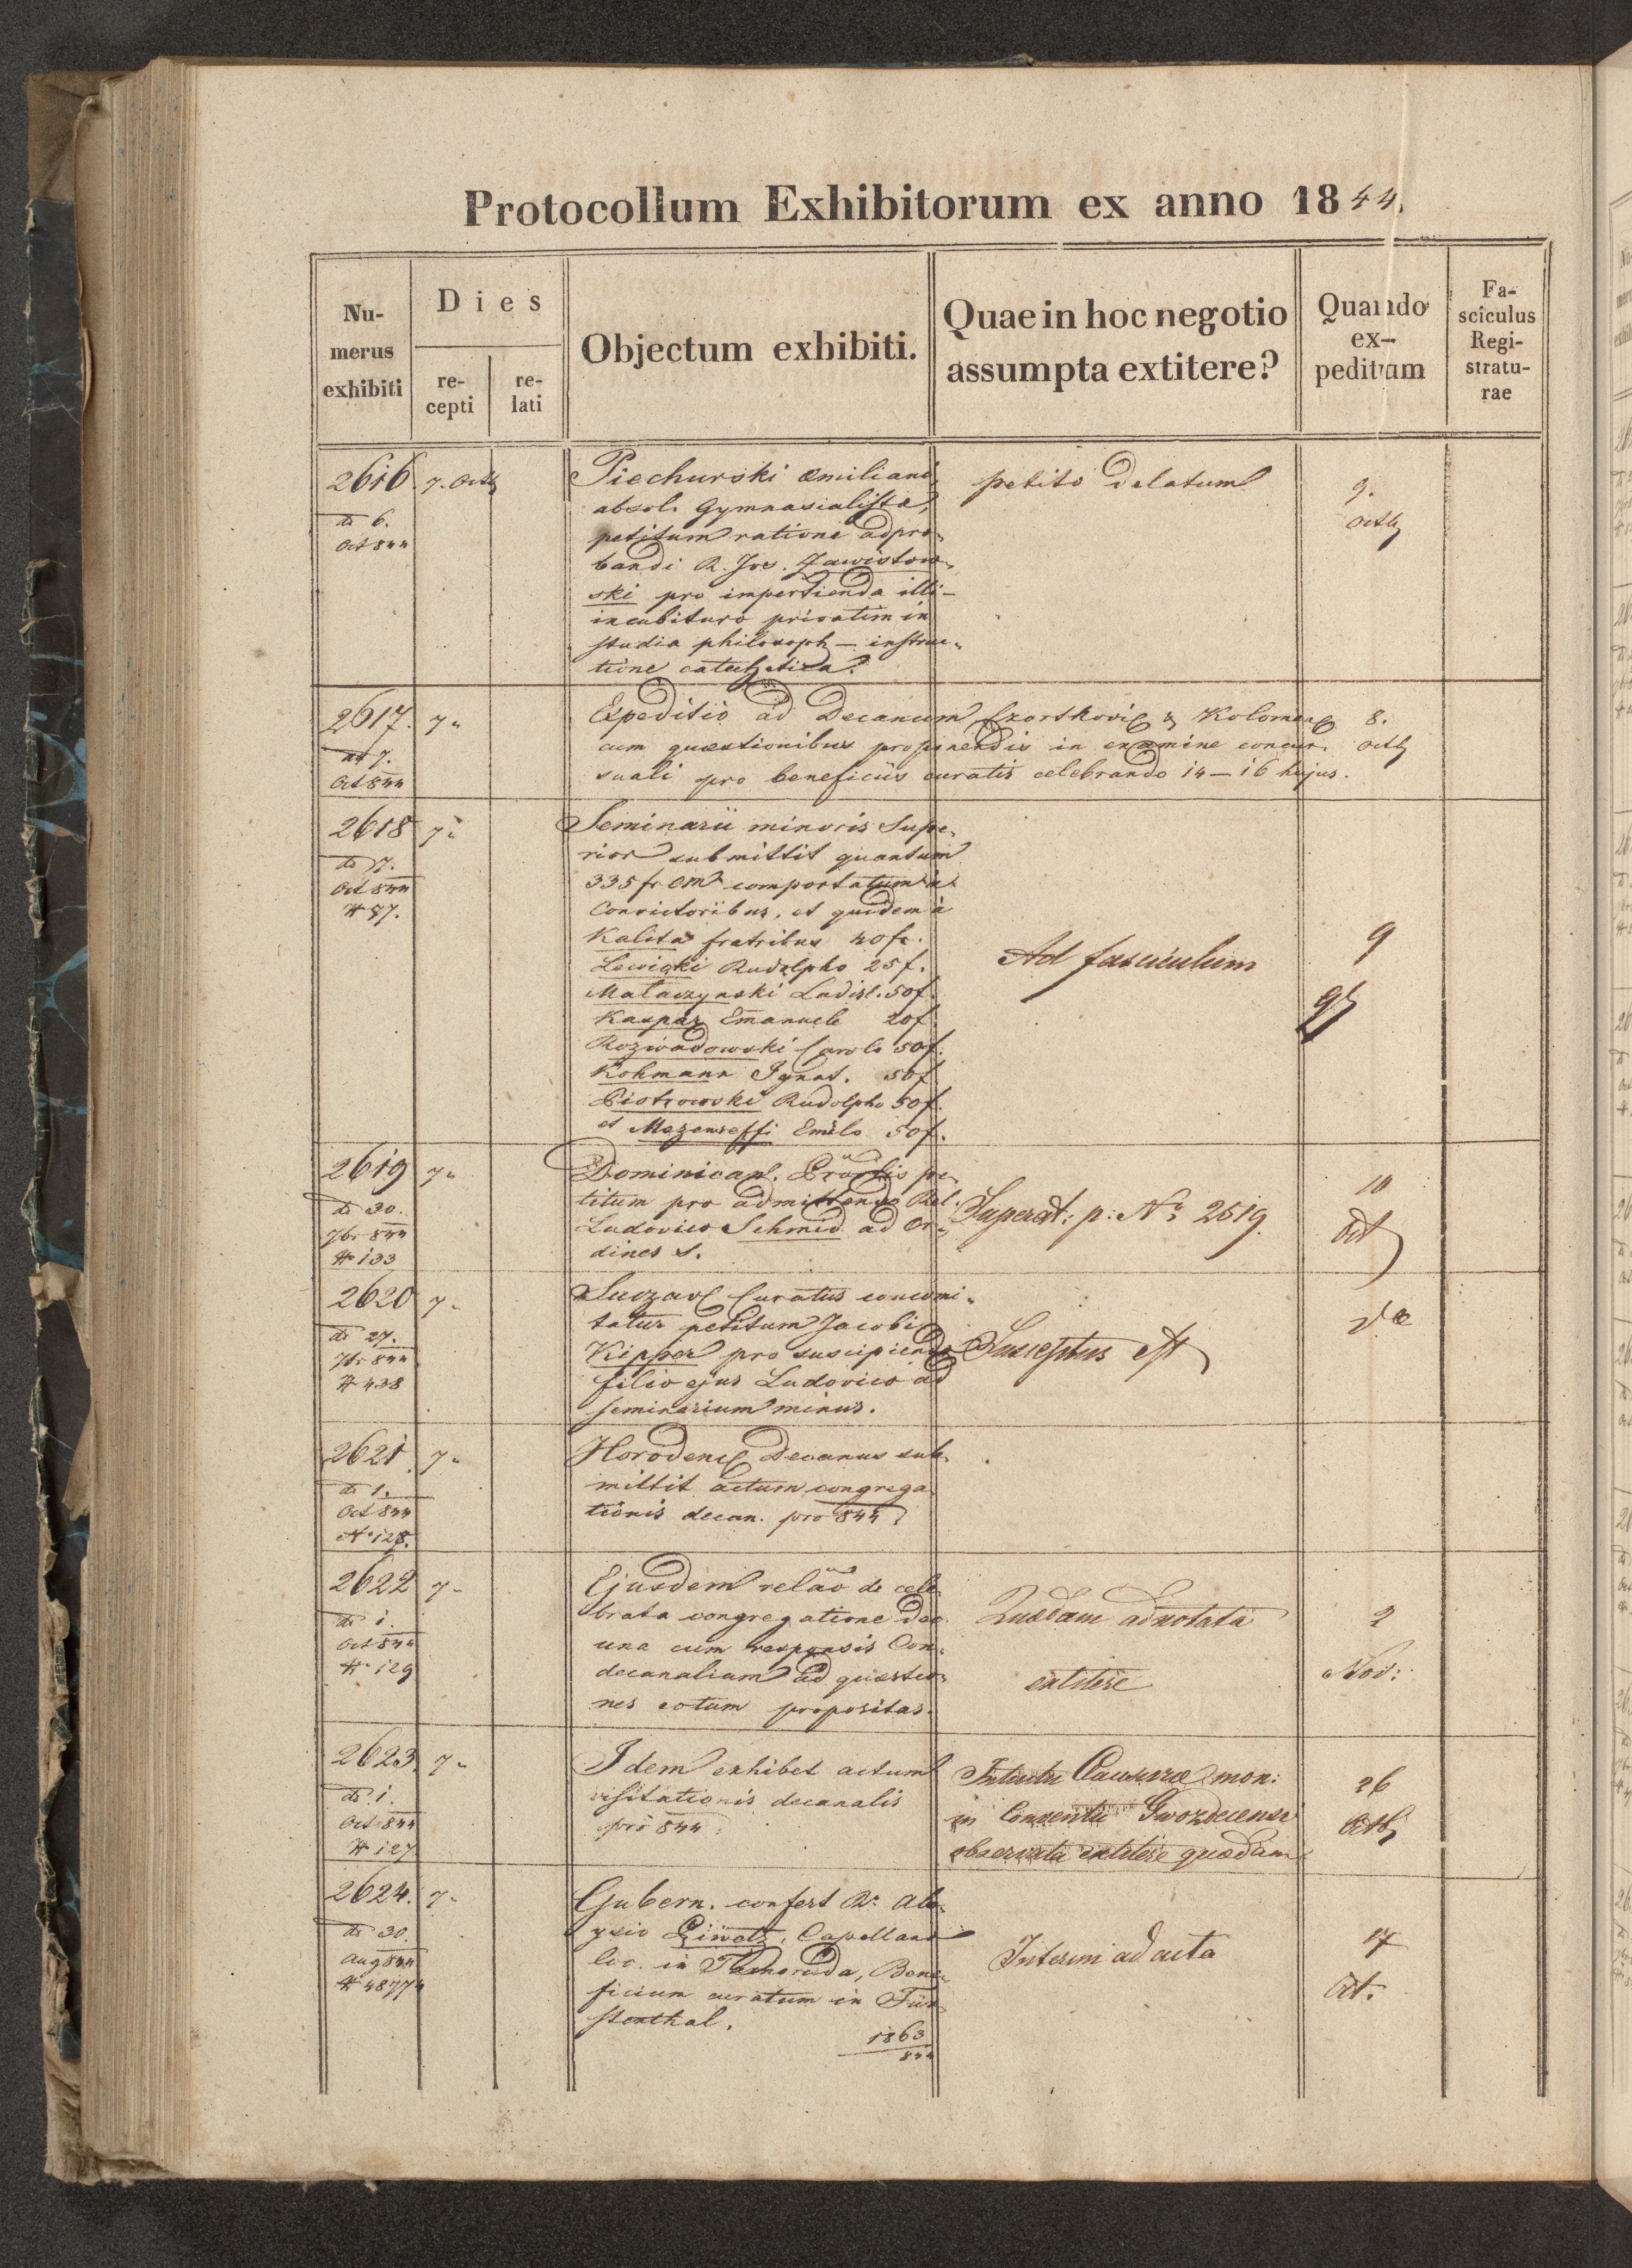 Protocollum Exhibitorum ex anno 1844.
Nu-
merus
exhibiti
Dies
re-
cepti
re-
lati
Objectum exhibiti.
Quae in hoc negotio
assumpta extitere?
Quando
ex-
peditum
Fa-
sciculus
Regi-
stratu-
rae
2616 7. Octb
dd 6.
Oct 844
Piechurski Æmiliani
absol. Gymnasialistæ,
petitum ratione adpro-
bandi R. Jos. Zawistow-
ski pro impertienda illi-
incubituro privatim in
studia philosoph – instruc-
tione catechetica.
petito delatum
9.
Octb
2617. 7"
dd 7.
Oct 844
Expeditio ad Decanum Czortkovi & Kolomea
cum quæstionibus proponendis in examine concur-
suali pro beneficiis curatis celebrando 14–16 hujus.
8.
Octb
2618 7"
dd 7.
Oct 844
# 87.
Seminarii minoris Supe-
rior submittit quantum
335 fr CM comportatum a
Convictoribus, et quidem à
Kalita fratribus 40 fr.
Lewicki Rudolpho 25 f.
Małaczynski Ladisl. 50 f.
Kaspar Emanuele 20 f
Rozwadowski Carolo 50 f.
Kohmann Ignat. 50 f
Piotrowski Rudolpho 50 f.
et Mezenseffi Emilo 50 f.
Ad fasciculum
9
2619 7"
dd 30.
7br 844
# 133
Dominican. pe-
titum pro admittendo Rel.
Ludovico Schmid ad Or-
dines s.
Superat: p: No 2519.
10
Oct
2620 7"
dd 27.
7br 844
# 438
Suczav Curatus concomi-
tatur petitum Jacobi
Kipper pro suscipiendo
filio ejus Ludovico ad
seminarium minus.
Susceptus est
2621 7"
dd 1.
Oct 844
No 128.
Horodenc Decanus sub-
mittit actum congrega-
tionis decan. pro 844
2622 7"
dd 1.
Oct 844
# 129
Ejusdem relão de cele-
brata congregatione dec.
una cum responsis Con-
decanalium ad quæstio-
nes eotum propositas.
Quædam adnotata
extitere
2
Nov:
2623 7"
dd 1.
Oct 844
# 127
Idem exhibet actum
visitationis decanalis
pro 844
Intuitu Clausuræ mon:
in Conventu Gwozdecensi
observata extitere quædam
26
Octb
2624. 7"
dd 30.
Aug 844
# 48774
Gubern. confert R: Alo-
ysio , Capellano
loc. in , Bene-
ficium curatum in Für-
stenthal.
1863
844
Interim ad acta
17
Oct.